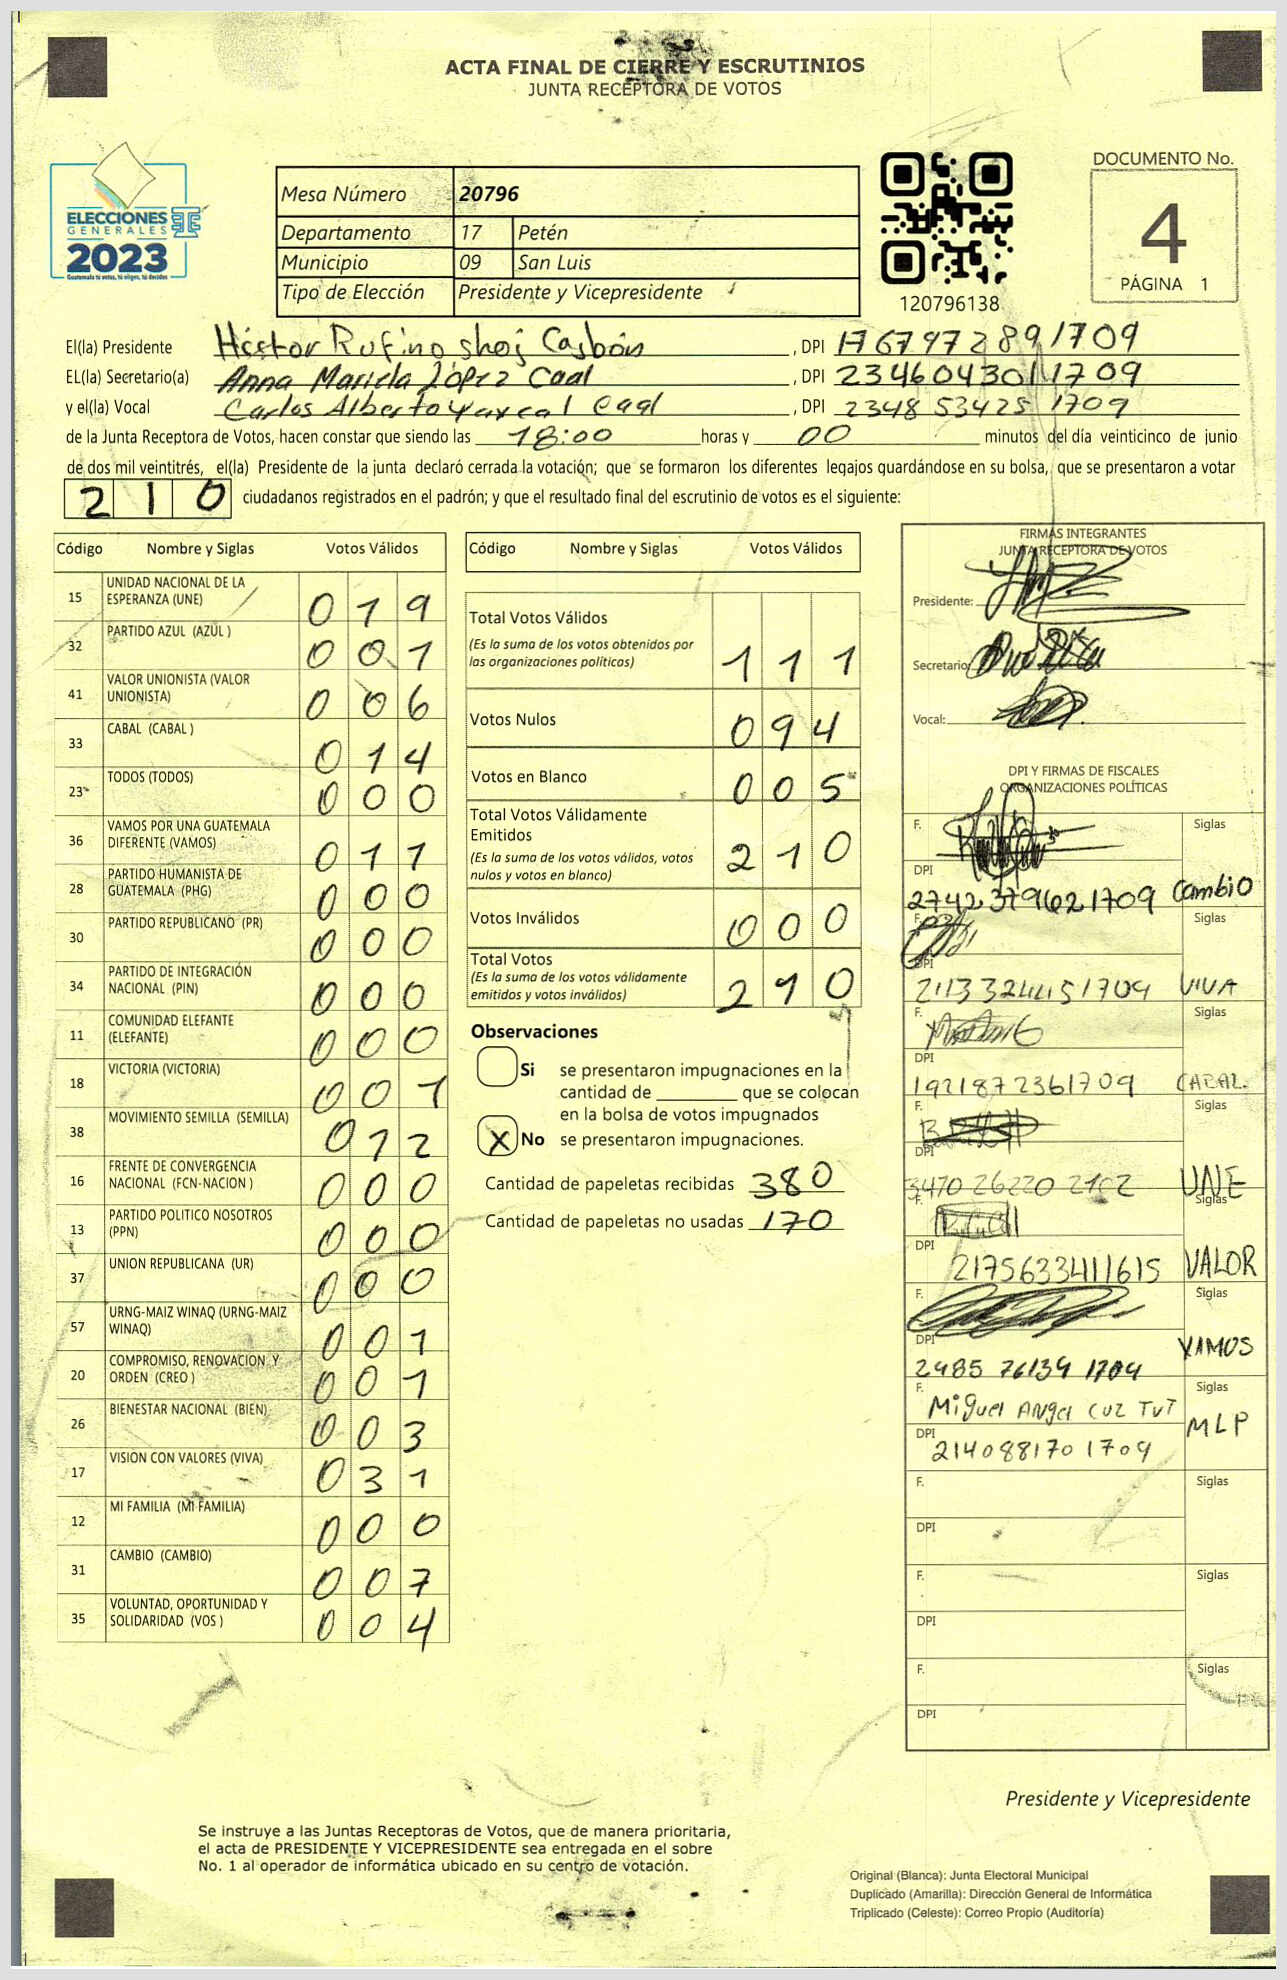 ACTA FINAL DE CIERRE Y ESCRUTINIOS
JUNTA RECEPTORA DE VOTOS
ELECCIONES
GENERALES
2023
Guatemala tú votas, tú eliges, tú decides
Mesa Número 20796
Departamento 17 Petén
Municipio 09 San Luis
Tipo de Elección Presidente y Vicepresidente
120796138
DOCUMENTO No.
4
PÁGINA 1
El(la) Presidente Héctor Rufino , DPI 1767972891709
EL(la) Secretario(a) Anna Mariela López Caal , DPI 2346043011709
y el(la) Vocal Carlos Alberto Yaxcal Caal , DPI 2348 53425 1709
de la Junta Receptora de Votos, hacen constar que siendo las 18:00 horas y 00 minutos del día veinticinco de junio
de dos mil veintitrés, el(la) Presidente de la junta declaró cerrada la votación; que se formaron los diferentes legajos guardándose en su bolsa, que se presentaron a votar
210 ciudadanos registrados en el padrón; y que el resultado final del escrutinio de votos es el siguiente:
Código Nombre y Siglas Votos Válidos
15 UNIDAD NACIONAL DE LA ESPERANZA (UNE) 019
32 PARTIDO AZUL (AZUL ) 001
41 VALOR UNIONISTA (VALOR UNIONISTA) 006
33 CABAL (CABAL ) 014
23 TODOS (TODOS) 000
36 VAMOS POR UNA GUATEMALA DIFERENTE (VAMOS) 011
28 PARTIDO HUMANISTA DE GUATEMALA (PHG) 000
30 PARTIDO REPUBLICANO (PR) 000
34 PARTIDO DE INTEGRACIÓN NACIONAL (PIN) 000
11 COMUNIDAD ELEFANTE (ELEFANTE) 000
18 VICTORIA (VICTORIA) 001
38 MOVIMIENTO SEMILLA (SEMILLA) 012
16 FRENTE DE CONVERGENCIA NACIONAL (FCN-NACION ) 000
13 PARTIDO POLITICO NOSOTROS (PPN) 000
37 UNION REPUBLICANA (UR) 000
57 URNG-MAIZ WINAQ (URNG-MAIZ WINAQ) 001
20 COMPROMISO, RENOVACION Y ORDEN (CREO ) 001
26 BIENESTAR NACIONAL (BIEN) 003
17 VISION CON VALORES (VIVA) 031
12 MI FAMILIA (MI FAMILIA) 000
31 CAMBIO (CAMBIO) 007
35 VOLUNTAD, OPORTUNIDAD Y SOLIDARIDAD (VOS ) 004
Código Nombre y Siglas Votos Válidos
Total Votos Válidos
(Es la suma de los votos obtenidos por
las organizaciones políticas) 111
Votos Nulos 094
Votos en Blanco 005
Total Votos Válidamente
Emitidos
(Es la suma de los votos válidos, votos
nulos y votos en blanco) 210
Votos Inválidos 000
Total Votos
(Es la suma de los votos válidamente
emitidos y votos inválidos) 210
Observaciones
Si se presentaron impugnaciones en la
cantidad de ________ que se colocan
en la bolsa de votos impugnados
X No se presentaron impugnaciones.
Cantidad de papeletas recibidas 380
Cantidad de papeletas no usadas 170
FIRMAS INTEGRANTES
JUNTA RECEPTORA DE VOTOS
Presidente:
Secretario:
Vocal:
DPI Y FIRMAS DE FISCALES
ORGANIZACIONES POLÍTICAS
F. Siglas
DPI
2742379621709 Cambio
F. Siglas
DPI
2113324451709 VIVA
F. Siglas
DPI
1921872361709 CABAL
F. Siglas
DPI
3470 26220 2102 UNE
F. Siglas
DPI
2175633411615 VALOR
F. Siglas
DPI
2485 76139 1709 VAMOS
F. Miguel Angel Cuz Tut Siglas
DPI
2140881701709 MLP
F. Siglas
DPI
F. Siglas
DPI
F. Siglas
DPI
Presidente y Vicepresidente
Se instruye a las Juntas Receptoras de Votos, que de manera prioritaria,
el acta de PRESIDENTE Y VICEPRESIDENTE sea entregada en el sobre
No. 1 al operador de informática ubicado en su centro de votación.
Original (Blanca): Junta Electoral Municipal
Duplicado (Amarilla): Dirección General de Informática
Triplicado (Celeste): Correo Propio (Auditoría)